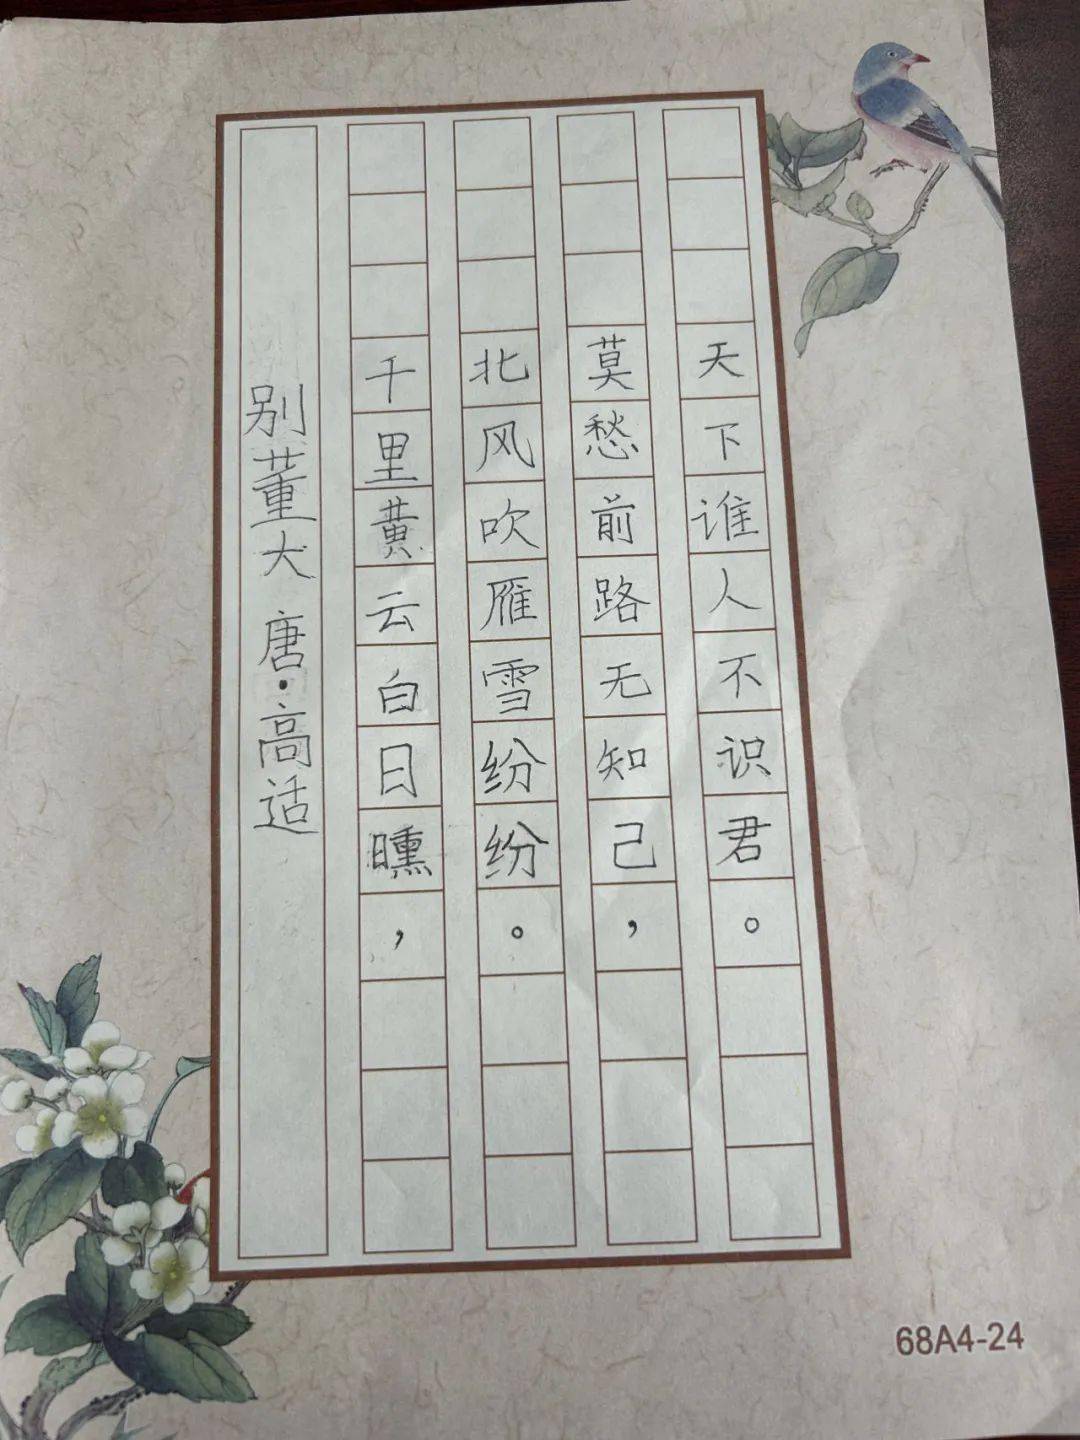 别董大 唐·高适
千里黄云白日曛，
北风吹雁雪纷纷。
莫愁前路无知己，
天下谁人不识君。
68A4-24